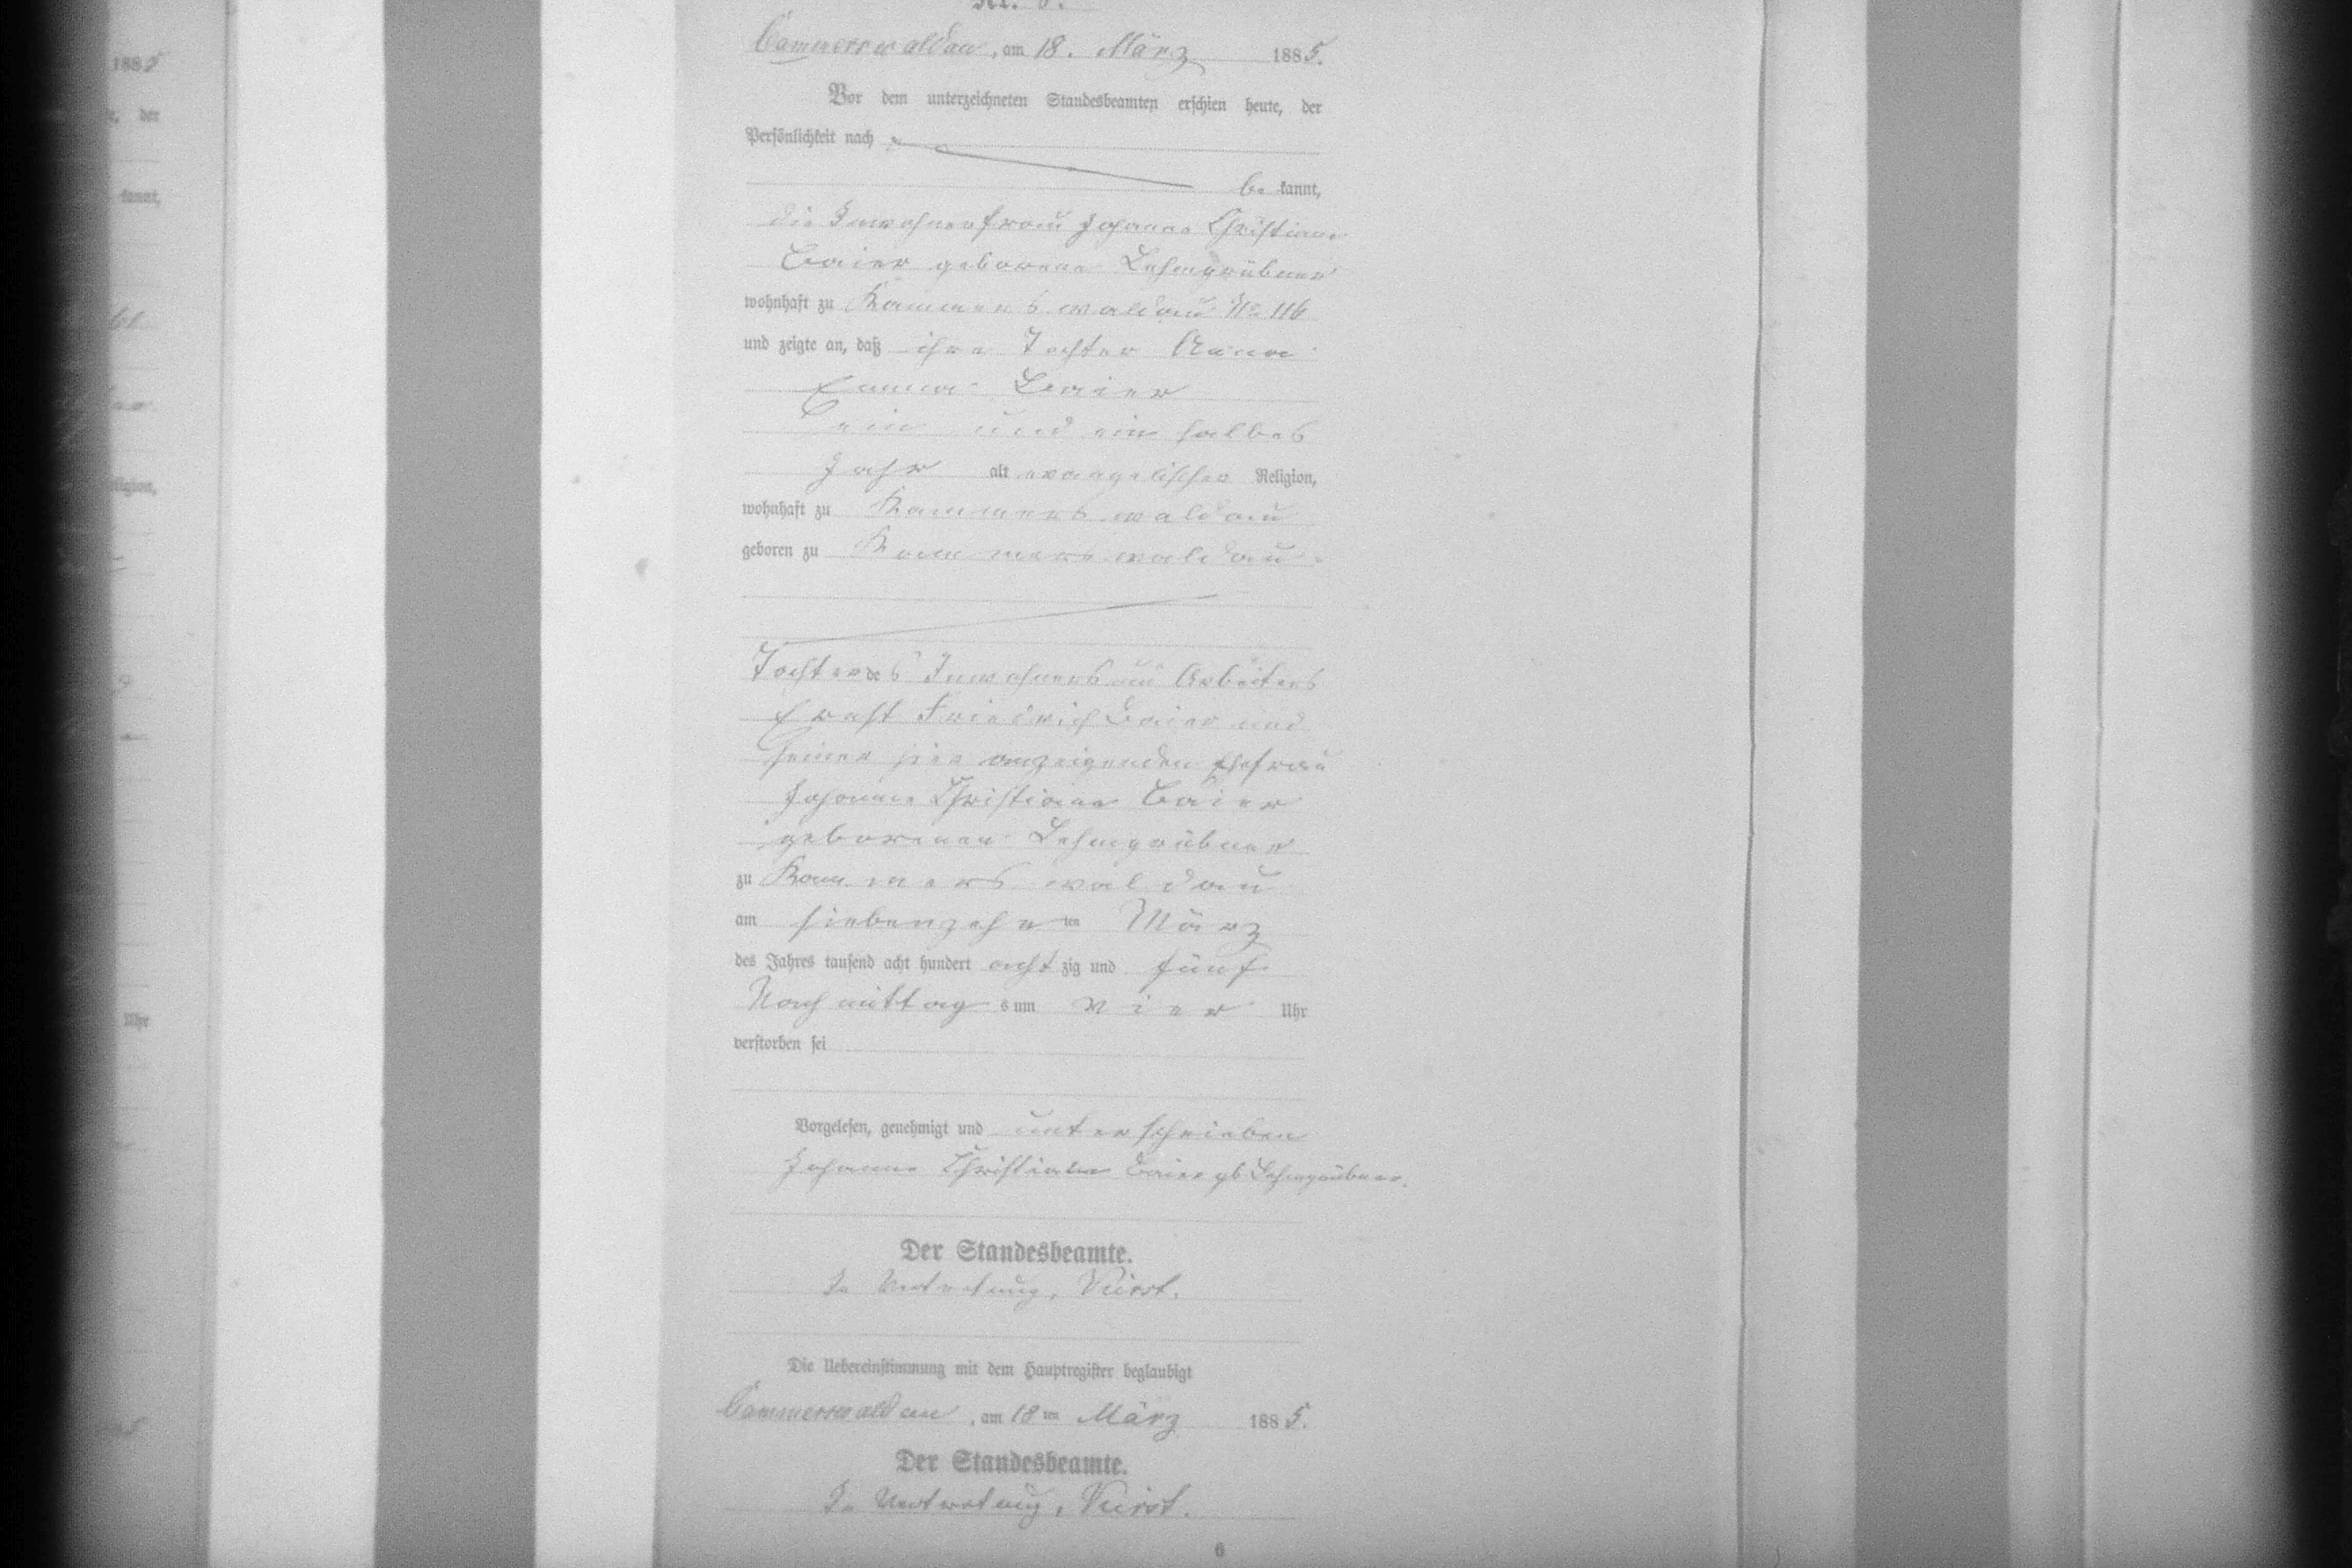 Cammerswaldau, am 18. März 1885.
Vor dem unterzeichneten Standesbeamten erschien heute, der
Persönlichkeit nach
be kannt,
die Inwohnerfrau Johanne Christiane
Baier geborene Lehmgrübner
wohnhaft zu Kammerswaldau No 116
und zeigte an, daß ihre Tochter Anna
Emma Baier
ein und ein halbes
Jahr alt evangelischer Religion,
wohnhaft zu Kammerswaldau
geboren zu Kammerswaldau
Tochter des Inwohners und Arbeiters
Ernst Friedrich Baier und
seiner hier anzeigenden Ehefrau
Johanne Christiane Baier
geborenen Lehmgrübner
zu Kammerswaldau
am siebenzehnten März
des Jahres tausend acht hundert achtzig und fünf
Nachmittags um vier Uhr
verstorben sei
Vorgelesen, genehmigt und unterschrieben
Johanne Christiane Baier gb Lehmgrübner.
Der Standesbeamte.
In Vertretung,
Die Uebereinstimmung mit dem Hauptregister beglaubigt
Cammerswaldau, am 18ten März 1885.
Der Standesbeamte.
In Vertretung,
6
1885
der
kannt,
Religion,
Uhr